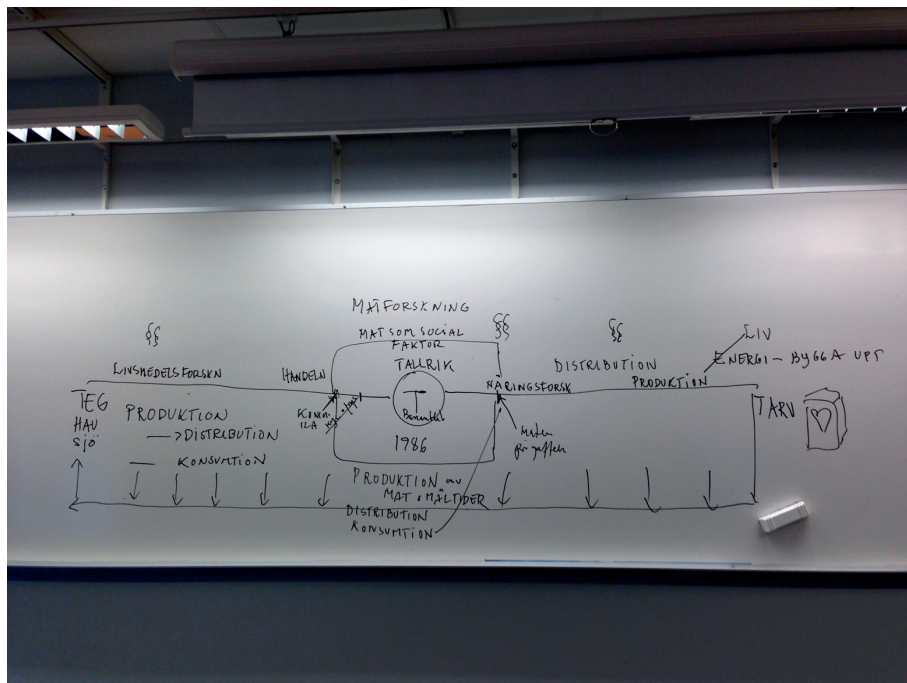 MATFORSKNING
MAT SOM SOCIAL
FAKTOR
§§
§§
§§
LIV
ENERGI - BYGGA UPP
LIVSMEDELSFORSKN
HANDELN
TALLRIK
DISTRIBUTION
NÄRINGSFORSK
PRODUKTION
TEG
HAV
SJÖ
PRODUKTION
—>DISTRIBUTION
KONSUMTION
1986
maten
på gaffeln
TARV
PRODUKTION av
MAT o MÅLTIDER
DISTRIBUTION
KONSUMTION